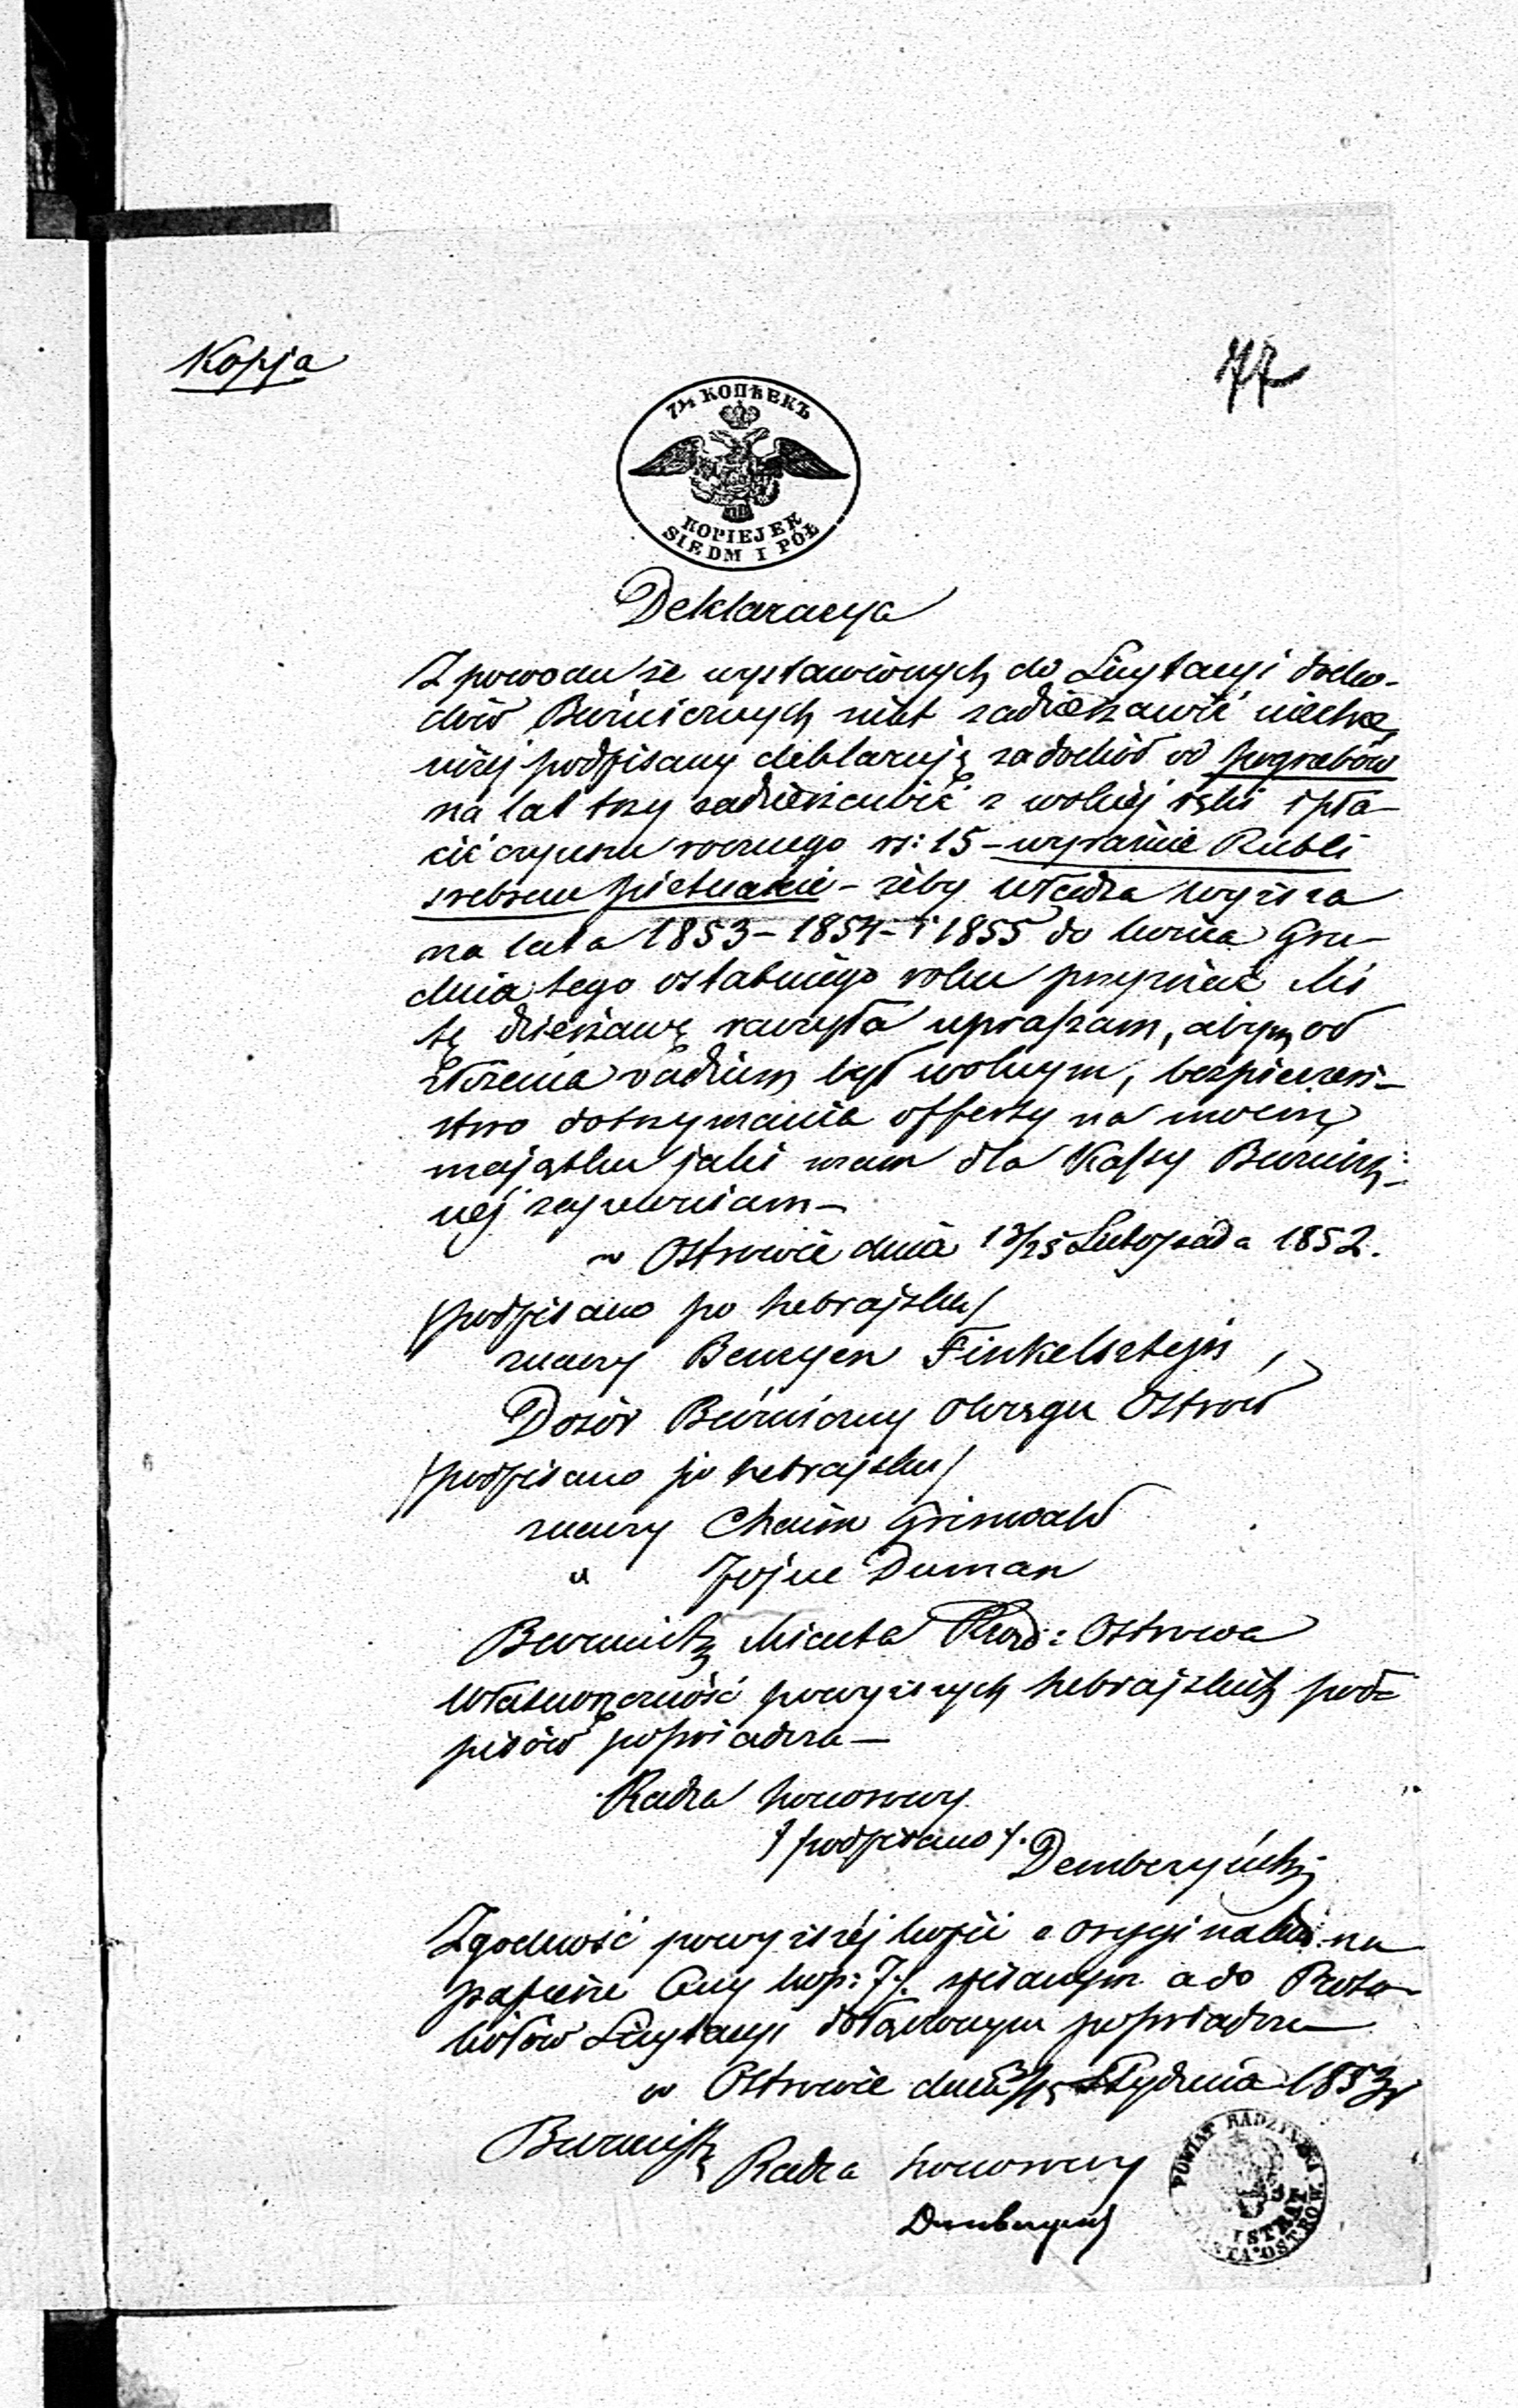 Kopja
77
7½ КОПѢЕКЪ
KOPIEJEK
SIEDM I PÓŁ
Deklaracya
Z powodu że wystawionych do Licytacyi docho-
dów Bóżnicznych nikt zadzierżawić niechce,
niżej podpisany deklaruję za dochód od pogrzebów
na lat trzy zadzierżawić z wolnej ręki i pła-
cić czynszu rocznego rs: 15 – wyraźnie Rubli
srebrem piętnaście – żeby władza wyższa
na lata 1853 – 1854 – i 1855 do końca Gru-
dnia tego ostatniego roku przyznać Mi
tę dzierżawę raczyła upraszam, abym od
złożenia vadium był wolnym, bezpieczeń-
stwo dotrzymania offerty na moim
majątku jaki mam dla Kassy Bóżnicz-
nej zapewniam –
w Ostrowie dnia 13/25 Listopada 1852.
/podpisano po hebrajsku/
znaczy Bencyen Finkelsztejn
Dozór Bóżniczny Okręgu Ostrów
/podpisano po hebrajsku/
znaczy Chaim Grinwald
" Jojne Duman
Burmistrz Miasta Ostrowa
Własnoręczność powyższych hebrajskich pod=
pisów poświadcza –
Radca honorowy
/podpisano/. Demberzyński
Zgodność powyższej kopii z oryginałem na
papierze Ceny kop: 7½ spisanym a do Proto-
kółów Licytacyi dołączonym poświadcza
w Ostrowie dnia 3/15 Stycznia 1853 r
Burmistrz Radca honorowy
Demberzyński
POWIAT RADZYŃSKI
OSTRÓW